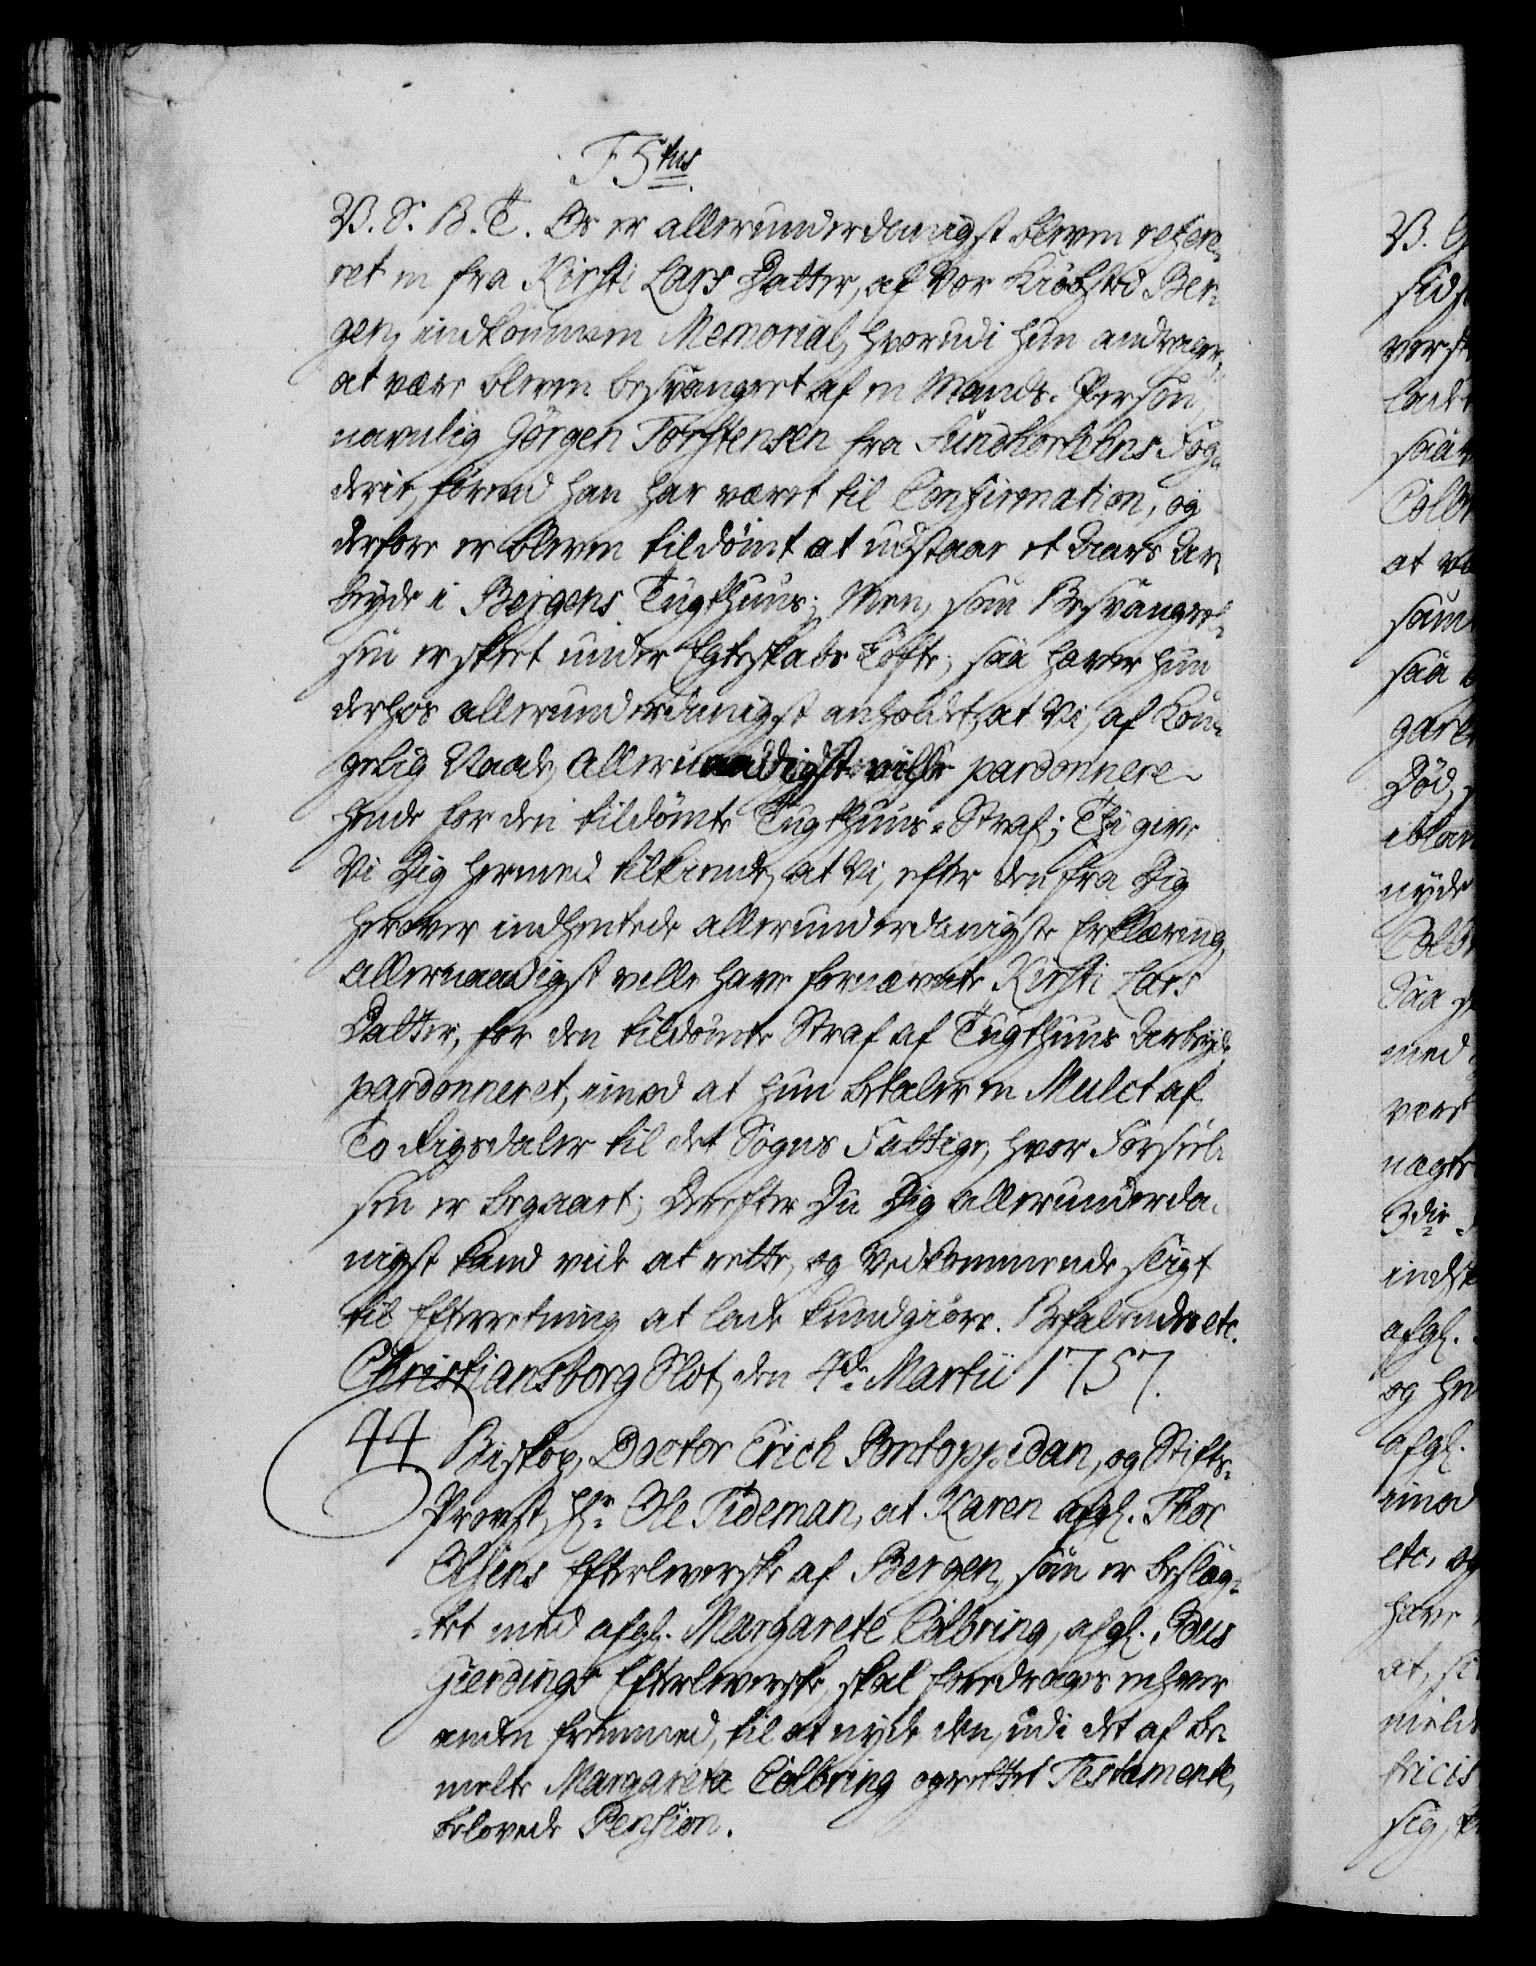 F 5tus
V. S. B. T. Os er allerunderdanigst bleven refere-
ret en fra Kirsti Lars Datter, af Vor Kiöbsted Ber-
gen, indkommen Memorial, hvorudi hun andrager,
at være bleven besvangret af en Mands-Person,
navnlig Jörgen Torstensen fra Sundhorlehns Fog-
derie, förend han har været til Confirmation, og
derfore er bleven tildömt at udstaae et Aars Ar-
beyde i Bergens Tugthuus; Men, som Besvangrel-
sen er skeet under Egteskabs Löfte, saa haver hun
derhos allerunderdanigst anholdet, at Vi, af Kon-
gelig Naade, allernaadigst ville pardonnere
hende for den tildömte Tugthuus-Straf; Thi give
Vi Dig hermed tilkiende, at Vi, efter den fra Dig
herover indhentede allerunderdanigste Erklæring,
allernaadigst ville have fornævnte Kirsti Lars
Datter, for den tildömte Straf af Tugthuus Arbeyde
pardonneret, imod at hun betaler en Mulct af
To Rigsdaler til det Sogns Fattige, hvor Forseel-
sen er begaaet; Derefter Du Dig allerunderda-
nigst kand viide at rette, og Vedkommende sligt
til Efterretning at lade kundgiöre. Befalendes etc.
Christiansborg Slot, den 4de Martii 1757.
44 Biskop, Doctor Erich Pontoppidan, og Stifts-
Provst, Hr. Ole Tideman, at Karen afgl. Thor
Olsens Efterleverske af Bergen, som er beslæg-
tet med afgl. Margarete Cölbring, afgl. Bus
Gierdings Efterleverske, skal foredrages enhver
anden fremmed, til at nyde den, udi det af be-
melte Margareta Cölbring oprettet Testamente,
belovede Pension.